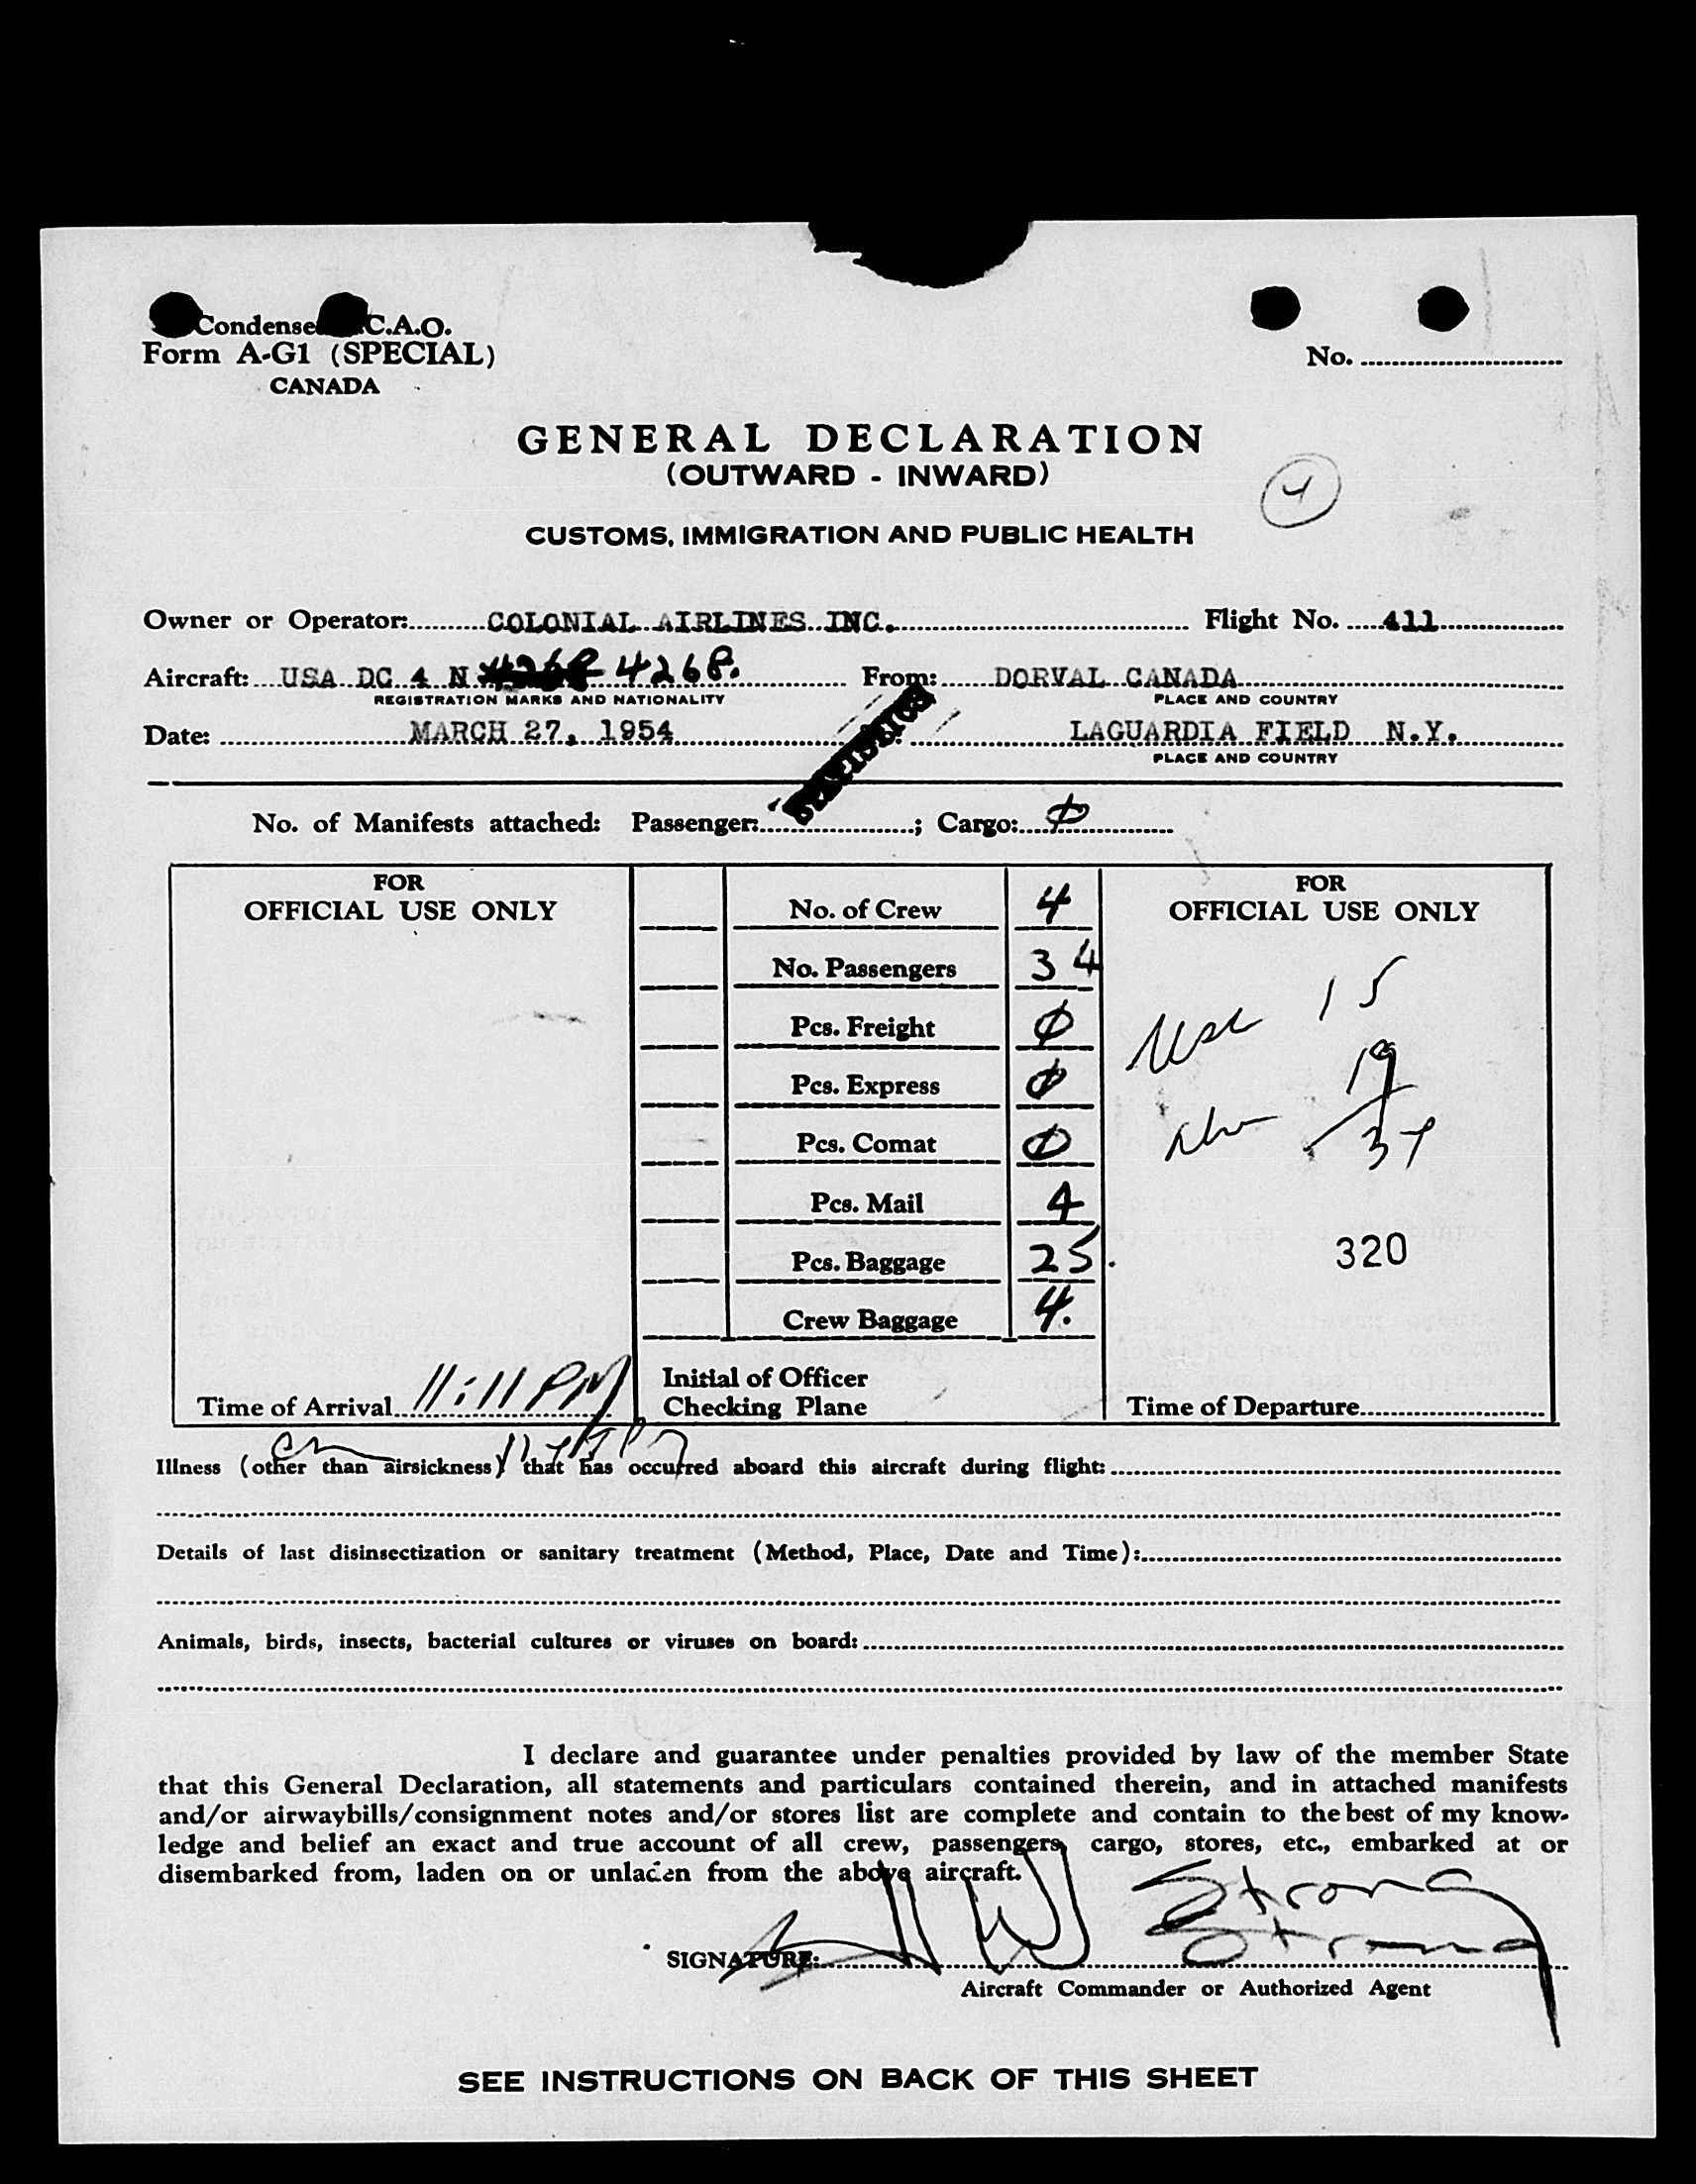 Condense C.A.O.
Form A-G1 (SPECIAL)
CANADA
No.
GENERAL DECLARATION
(OUTWARD - INWARD)
4
CUSTOMS, IMMIGRATION AND PUBLIC HEALTH
Owner or Operator: COLONIAL AIRLINES INC. Flight No. 411
Aircraft: USA DC 4 N 4268. From: DORVAL CANADA
REGISTRATION MARKS AND NATIONALITY PLACE AND COUNTRY
Date: MARCH 27, 1954 LAGUARDIA FIELD N.Y.
PLACE AND COUNTRY
STATISTICS
No. of Manifests attached: Passenger: ; Cargo: 0
FOR
OFFICIAL USE ONLY
No. of Crew 4
No. Passengers 34
Pcs. Freight 0
Pcs. Express 0
Pcs. Comat 0
Pcs. Mail 4
Pcs. Baggage 25.
Crew Baggage 4.
Initial of Officer
Checking Plane
FOR
OFFICIAL USE ONLY
15
19
34
320
Time of Arrival 11:11 PM
Time of Departure
Illness (other than airsickness) that has occurred aboard this aircraft during flight:
Details of last disinsectization or sanitary treatment (Method, Place, Date and Time):
Animals, birds, insects, bacterial cultures or viruses on board:
I declare and guarantee under penalties provided by law of the member State
that this General Declaration, all statements and particulars contained therein, and in attached manifests
and/or airwaybills/consignment notes and/or stores list are complete and contain to the best of my know-
ledge and belief an exact and true account of all crew, passengers, cargo, stores, etc., embarked at or
disembarked from, laden on or unladen from the above aircraft.
Strong
SIGNATURE: W Strong
Aircraft Commander or Authorized Agent
SEE INSTRUCTIONS ON BACK OF THIS SHEET